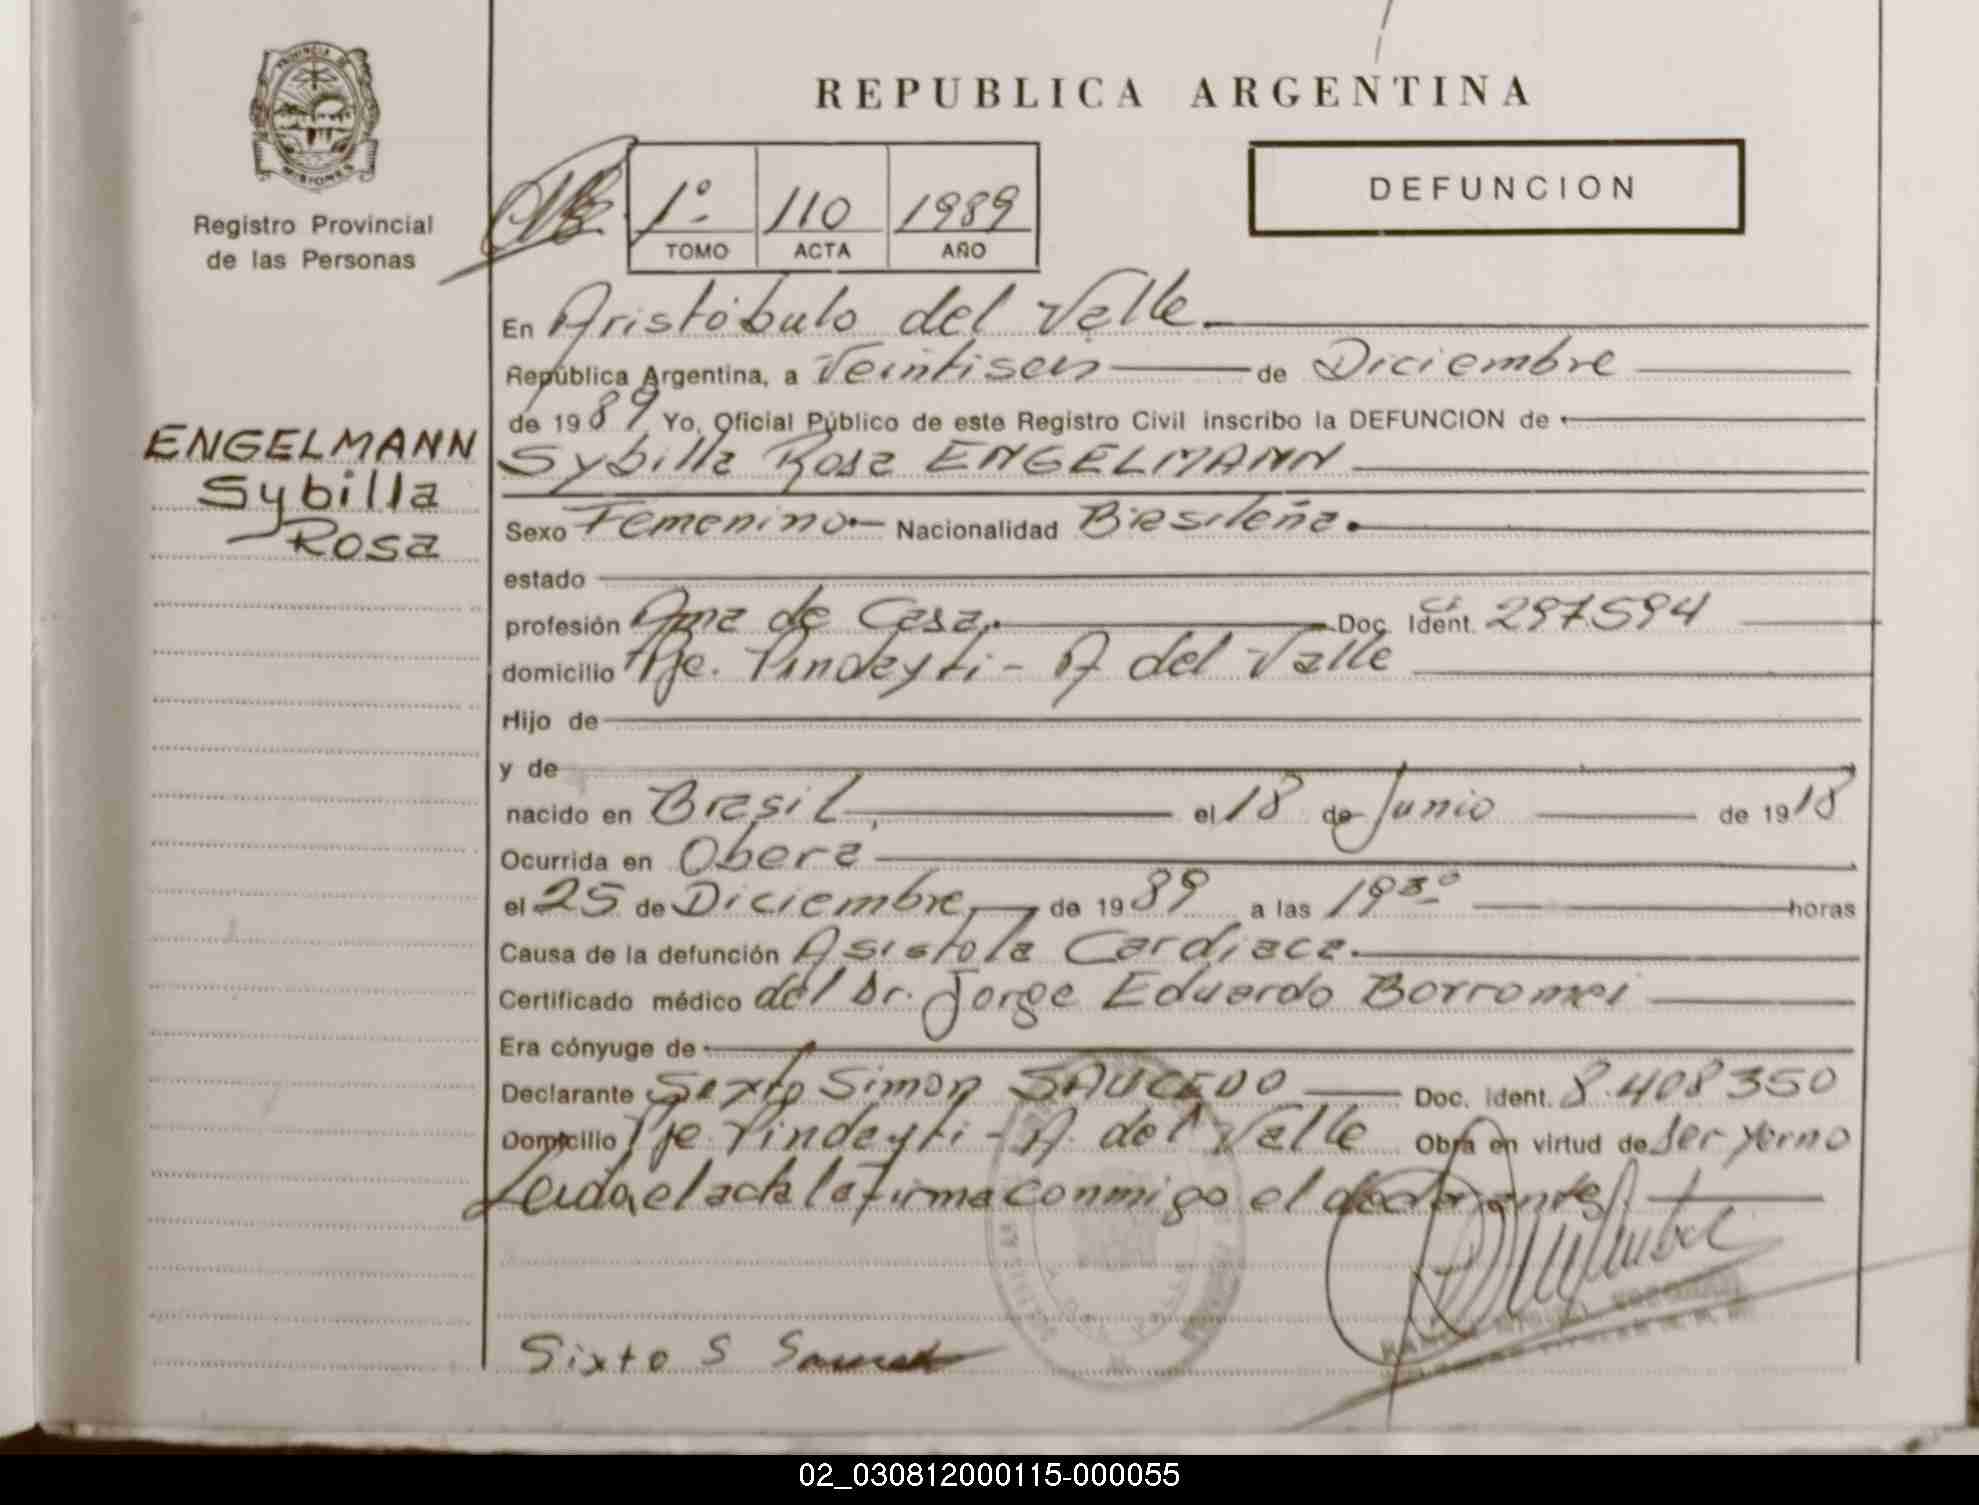 REPUBLICA ARGENTINA
PROVINCIA DE
MISIONES
Registro Provincial
de las Personas
1º
110
1989
TOMO
ACTA
AÑO
DEFUNCION
ENGELMANN
Sybilla
Rosa
En Aristóbulo del Valle.
República Argentina, a Veintiseis de Diciembre
de 1989 Yo, Oficial Público de este Registro Civil inscribo la DEFUNCION de
Sybilla Rosa ENGELMANN
Sexo Femenino.- Nacionalidad Brasileña.
estado
profesión Ama de Casa. Doc. Ident. C.I. 297.594
domicilio Pje. Pindayti - A del Valle
Hijo de
y de
nacido en Brasil, el 18 de Junio de 1918
Ocurrida en Obera
el 25 de Diciembre de 1989 a las 19 30 horas
Causa de la defunción Asistola Cardiaca.
Certificado médico del Dr. Jorge Eduardo Borromei
Era cónyuge de
Declarante Sexto Simon SAUCEDO Doc. Ident. 8.408350
Domicilio Pje Pindayti - A. del Valle Obra en virtud de ser yerno
Leida el acta la firma conmigo el declarante
Sixto S
02_030812000115-000055